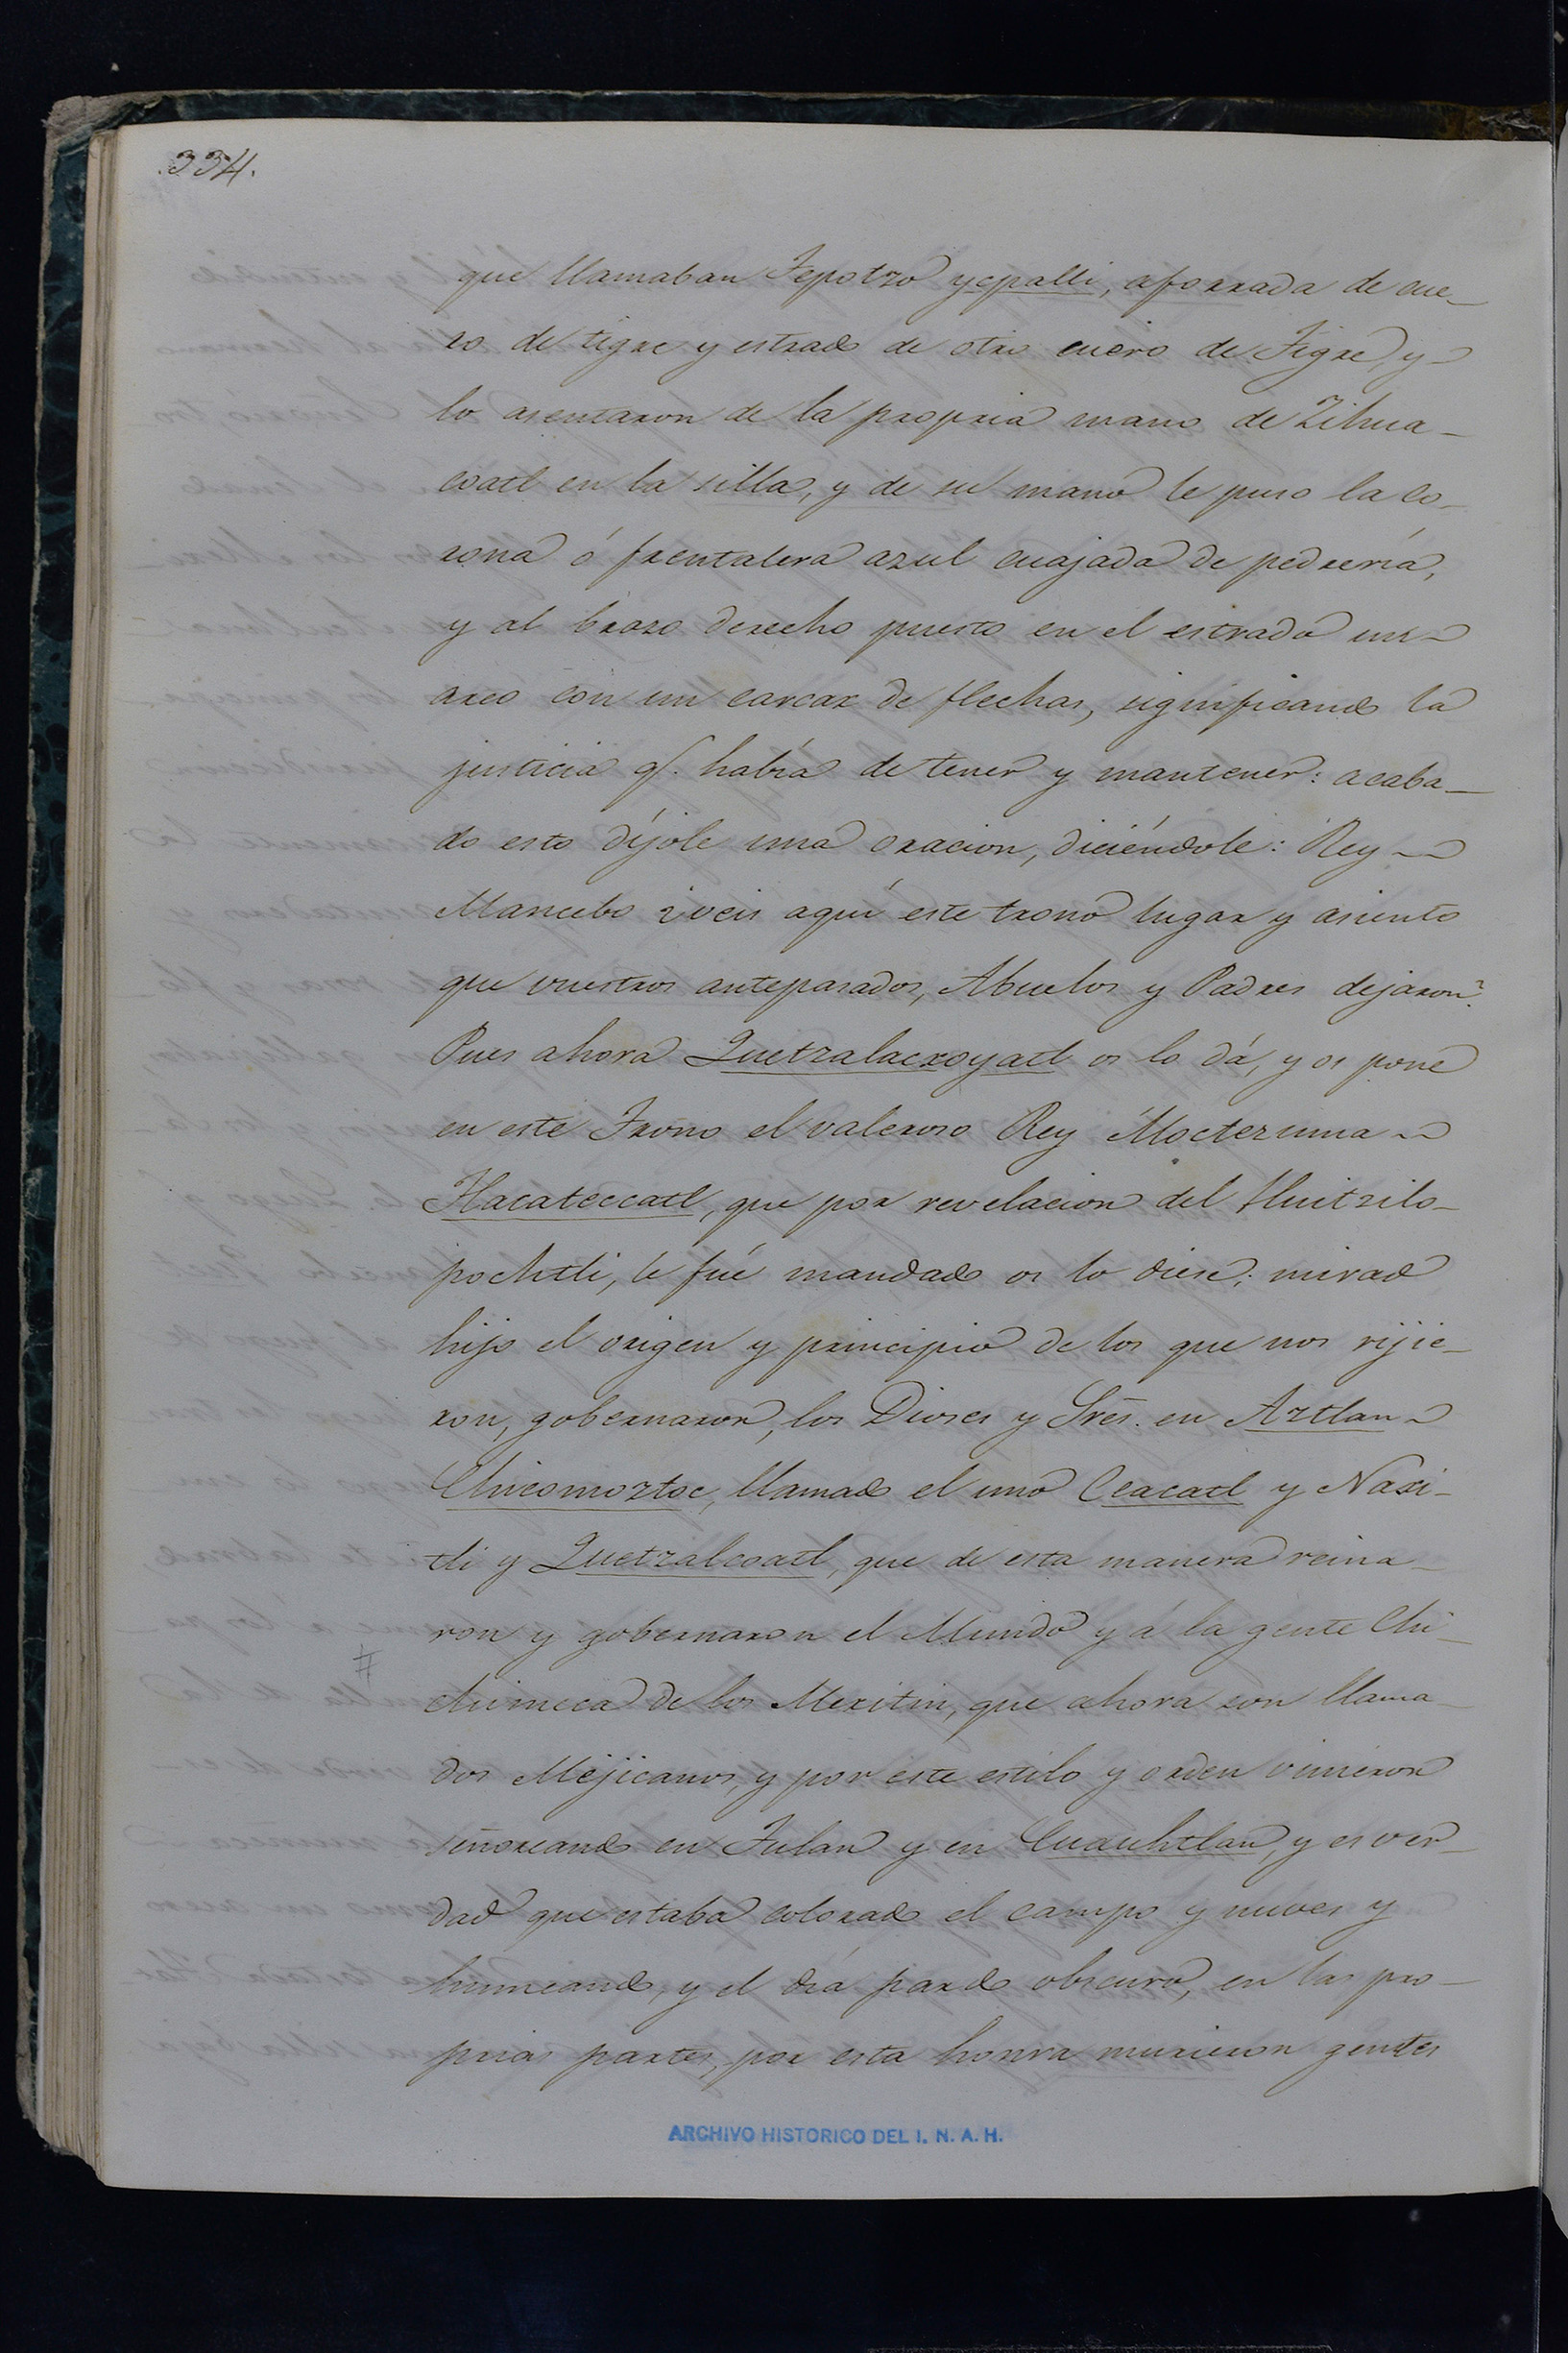 334.
que llamaban Tepotzo ycpalli, aforrada de cue_
ro de tigre y estrado de otro cuero de Tigre, y
lo asentaron de la propria mano de Zihua_
coatl en la silla, y de su mano le puso la co_
rona ó frentalera azul cuajada de pedrería,
y al brazo derecho puesto en el estrado un
arco con un carcax de flechas, significando la
justicia q. había de tener y mantener: acaba_
do esto díjole una oracion, diciéndole: Rey
Mancebo ¿veis aquí este trono lugar y asiento
que vuestros antepasados, Abuelos y Padres dejaron?
Pues ahora Quetzalacxoyatl os lo dá, y os pone
en este Trono el valeroso Rey Moctezuma
Tlacateccatl, que por revelacion del Huitzilo_
pochtli, le fué mandado os lo diese; mirad
hijo el origen y principio de los que nos rijie_
ron, gobernaron, los Dioses y Srēs. en Aztlan
Chicomoztoc, llamado el uno Ceacatl y Naxi_
tli y Quetzalcoatl, que de esta manera reina_
ron y gobernaron el Mundo y á la gente Chi_
chimeca de los Mexitin, que ahora son llama_
dos Mejicanos, y por este estilo y orden vinieron
señoreando en Tulan y en Cuauhtlan, y es ver_
dad que estaba colorado el campo y nuves y
humeando, y el día pardo obscuro, en las pro_
prias partes, por esta honra murieron gentes
ARCHIVO HISTORICO DEL I. N. A. H.